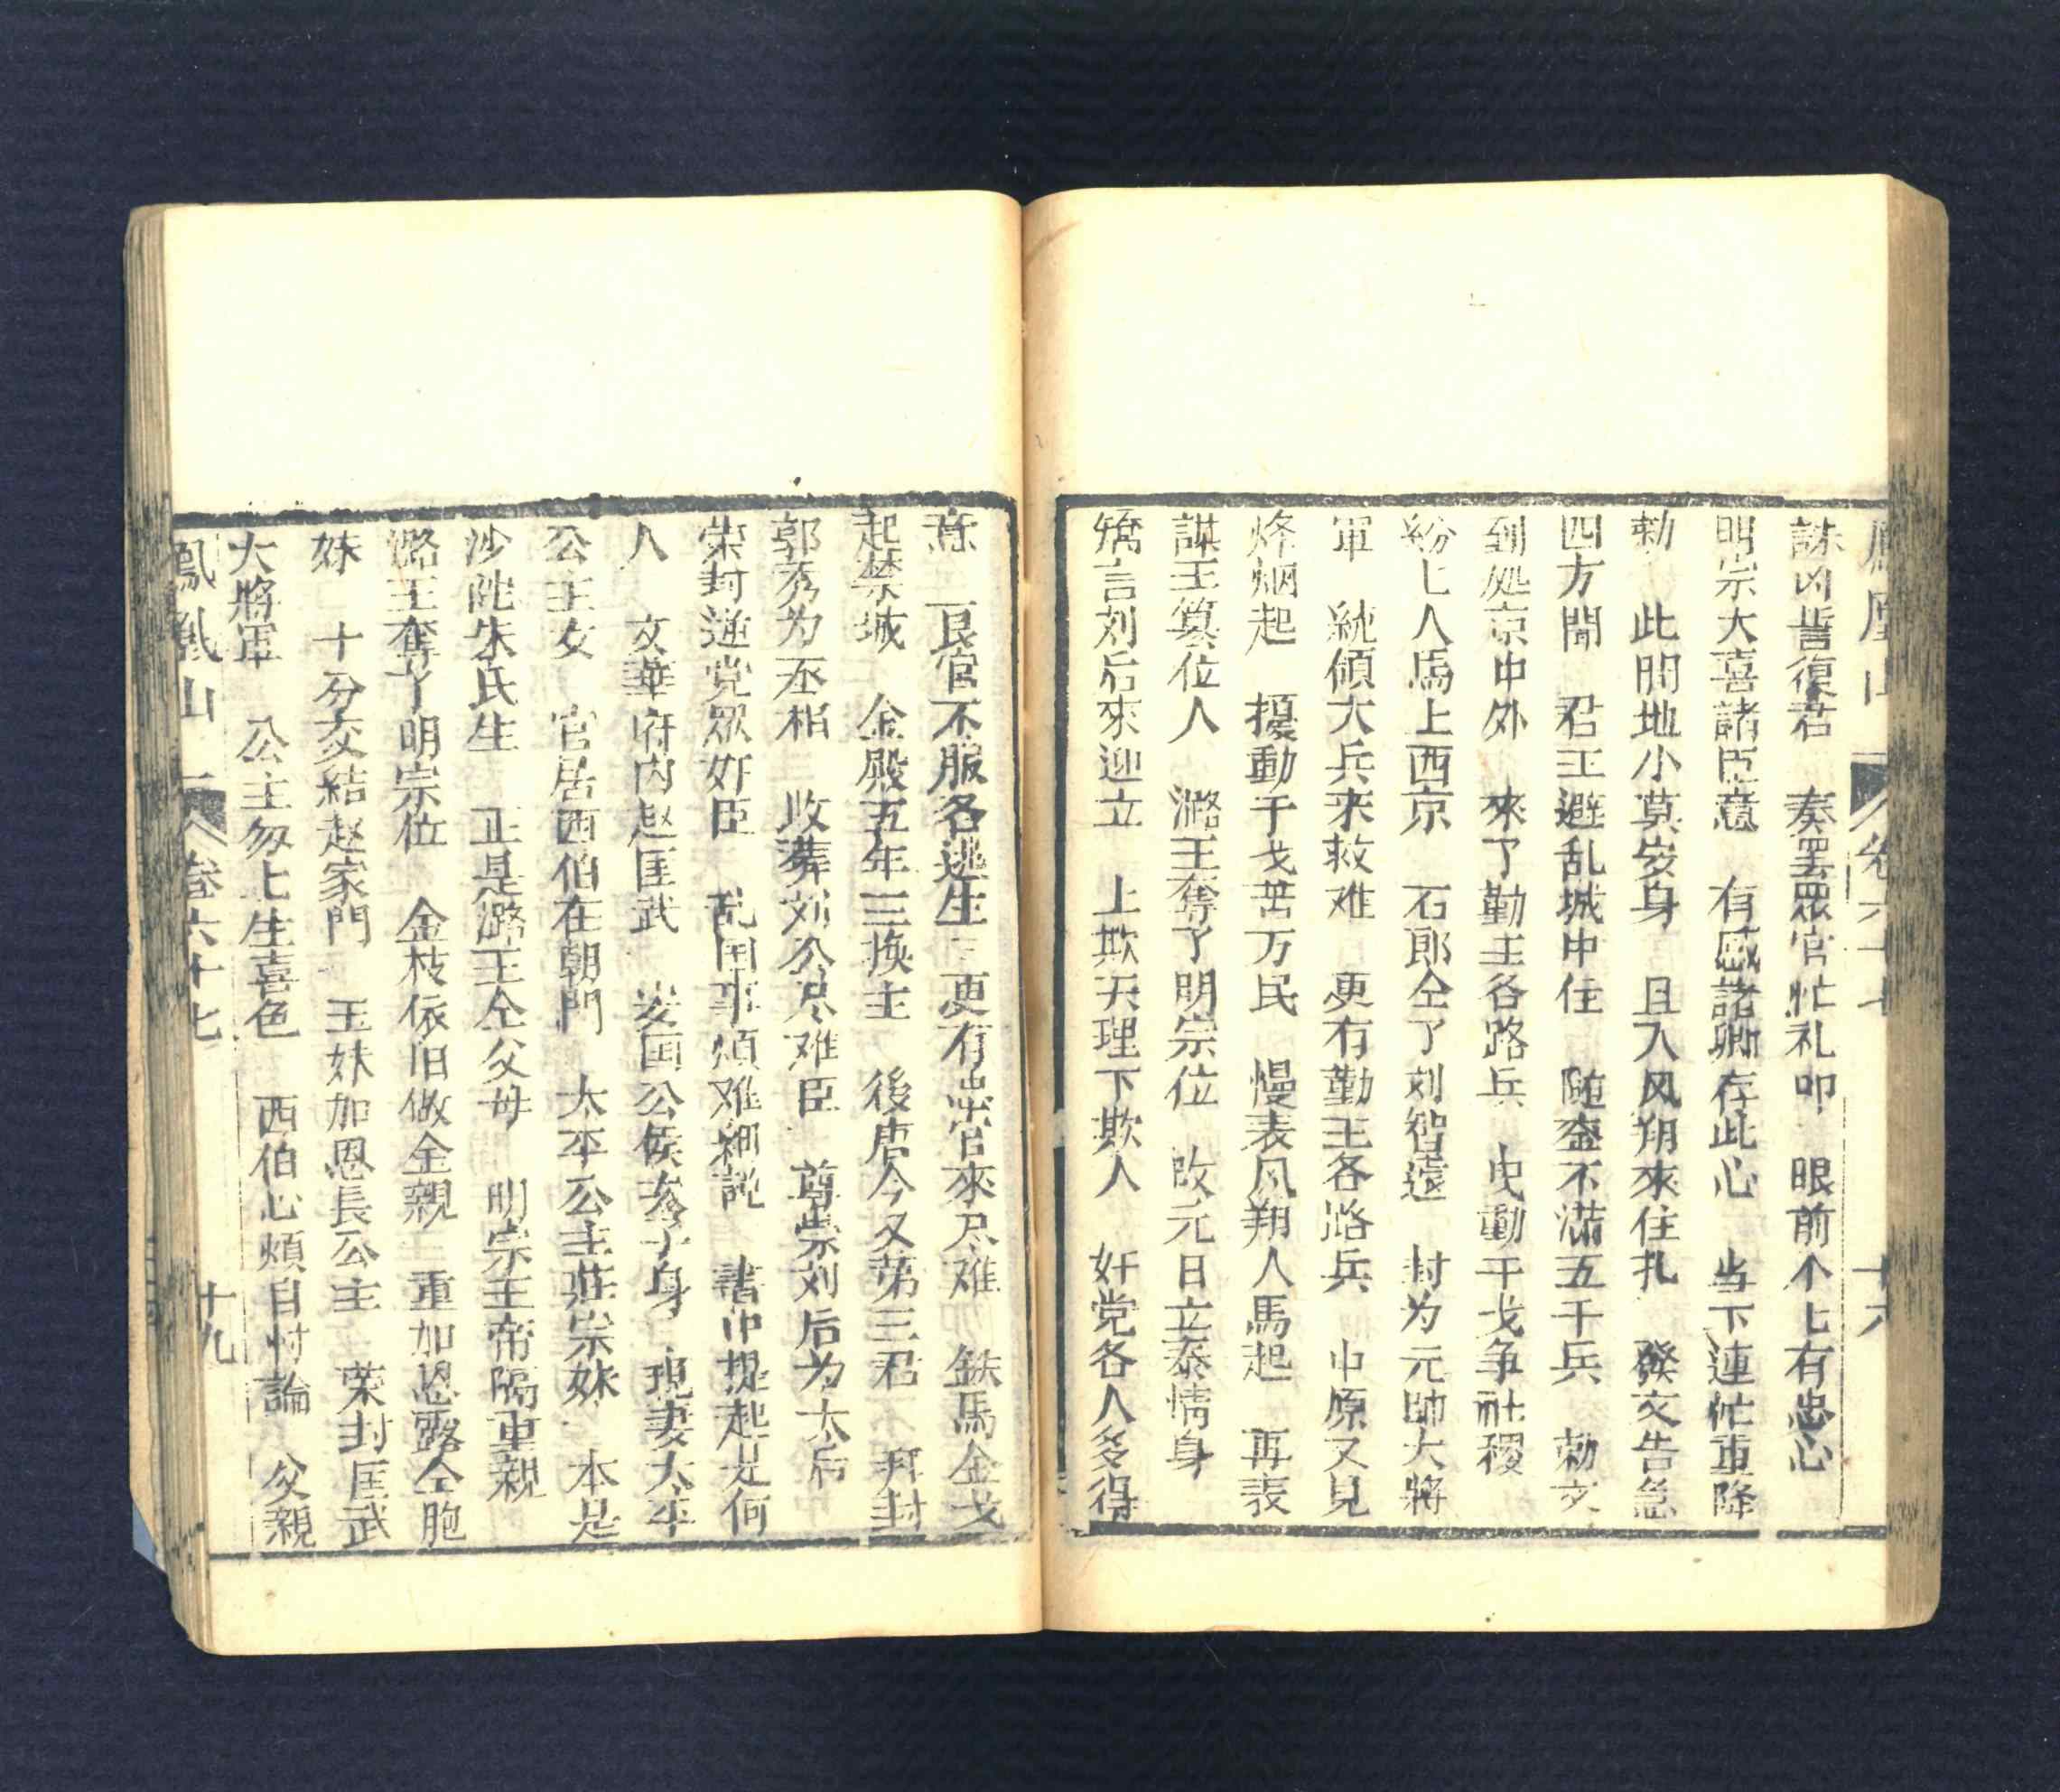 鳳凰山 卷六十七 十六
誅凶誓復君 奏罢眾官忙礼叩 眼前个上有忠心
明宗大喜諸臣意 有感諸卿存此心 当下連忙重降
勅 此間地小莫安身 且入风翔來住扎 發文告急
四方開 君王避乱城中住 随鸾不满五千兵 勅文
到処京中外 來了勤王各路兵 曳動干戈争社稷
紛七人馬上西京 石郎仝了刘智遠 封为元帥大將
軍 統傾大兵来救难 更有勤王各路兵 中原又見
烽烟起 擾動干戈苦万民 慢表风翔人馬起 再表
謀王篡位人 潞王奪了明宗位 改元日立泰情身
矯言刘后來迎立 上欺天理下欺人 奸党各人多得
意 一艮官不服各逃生 更有忠官來尽难 鉄馬金戈
起禁城 金殿五年三換主 後唐今又第三君 拜封
郭秀为丞相 收葬刘公尽难臣 尊崇刘后为太后
荣封逆党眾奸臣 乱国事煩难細説 書中提起是何
人 文華府内赵匡武 安国公侯女子身 現妻太平
公主女 官居西伯在朝門 太平公主莊宗妹 本是
沙陀朱氏生 正是潞王仝父母 明宗王帝隔重親
潞王奪了明宗位 金枝依旧做金親 重加恩露仝胞
妹 十分交結赵家門 玉妹加恩長公主 荣封匡武
大將軍 公主匆上生喜色 西伯心煩自忖論 父親
鳳凰山 卷六十七 十九